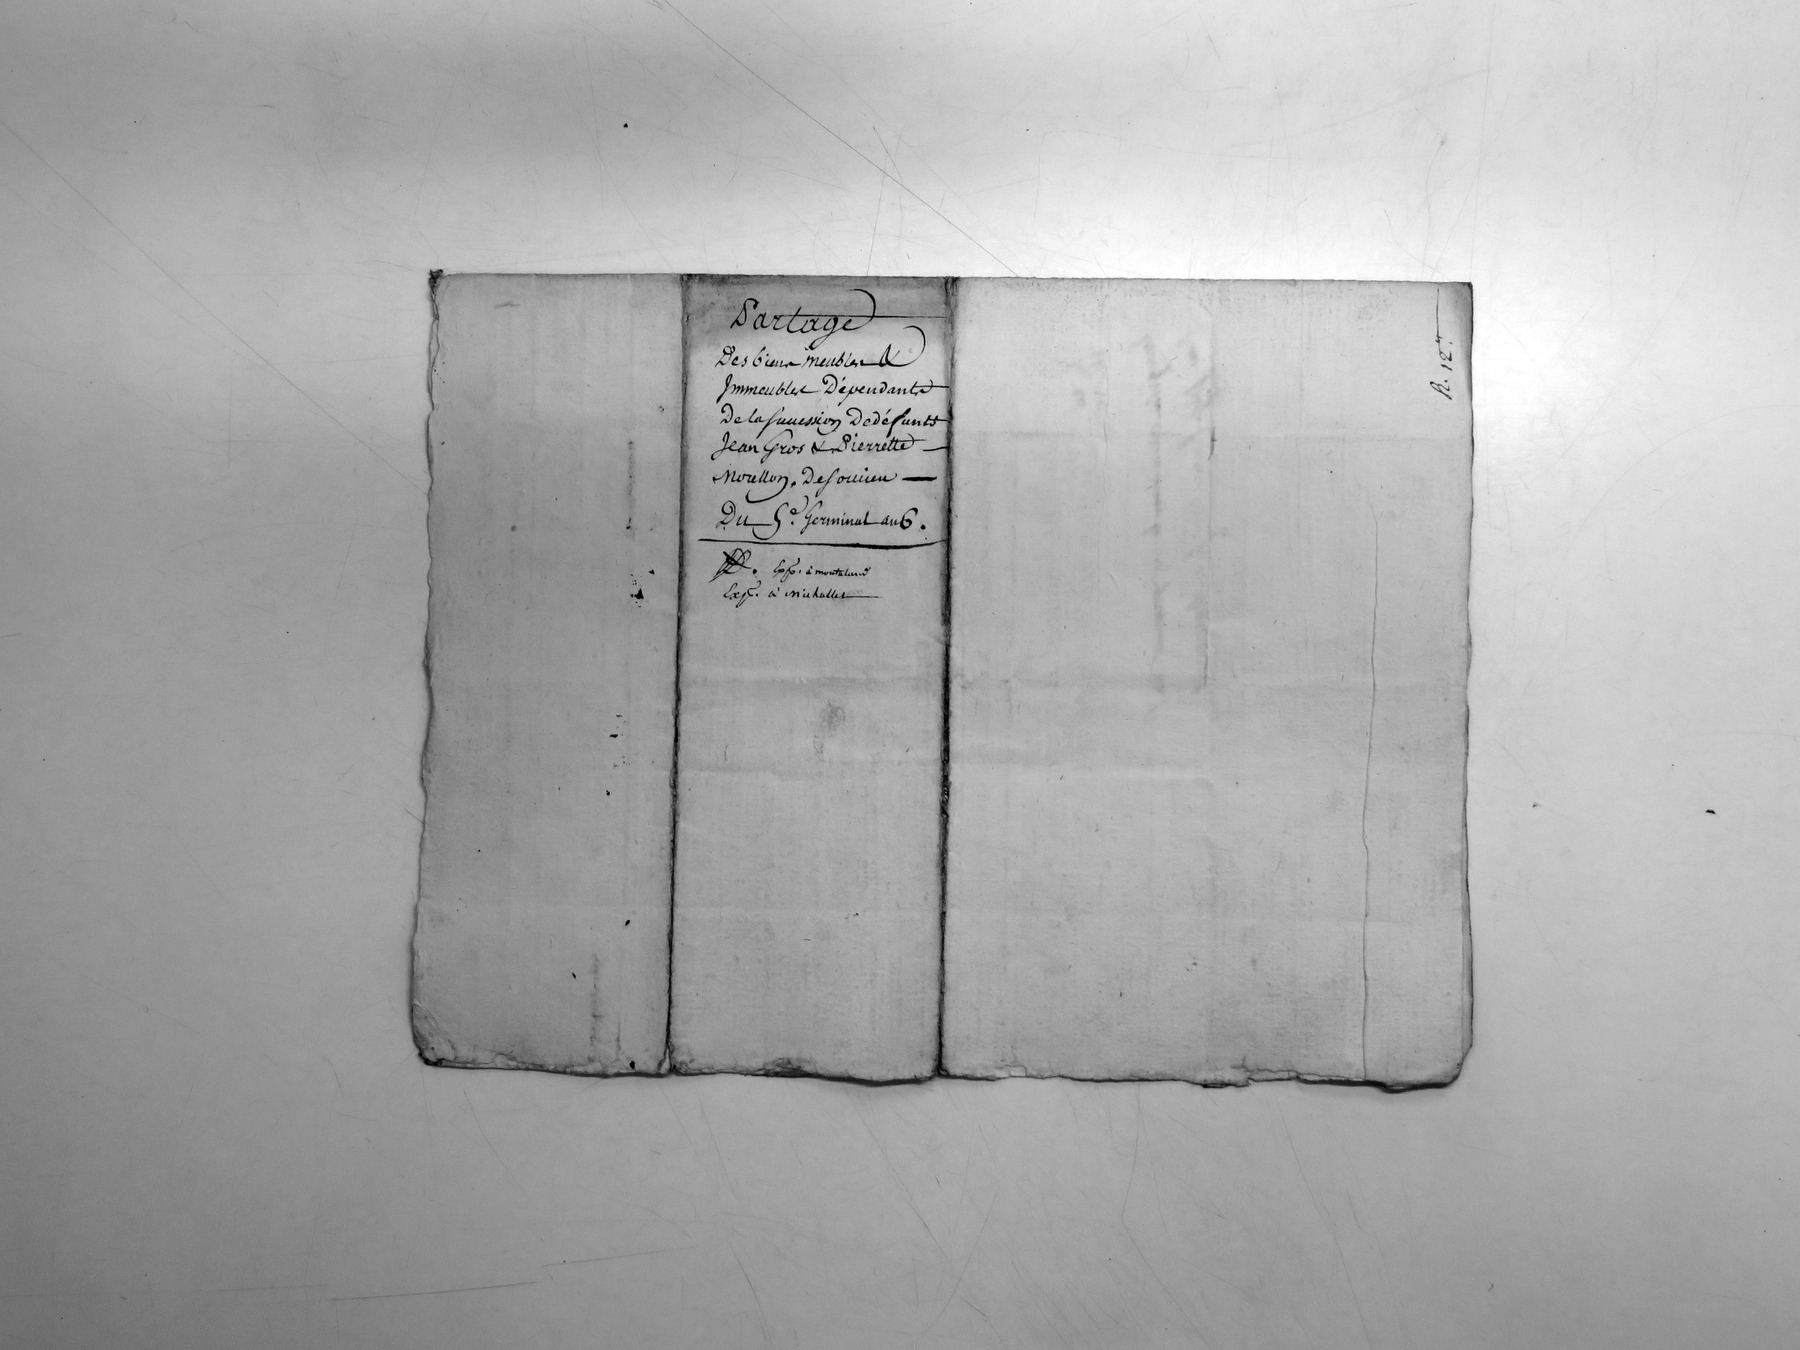 Partage
Des biens meubles &
Immeubles Dépendants
De la succession De défunts
Jean Gros & Pierrette
Morellon, De soucieu
Du 5e. Germinal an 6.
Expe. à montaland
Expe. à Michallet
R. 12